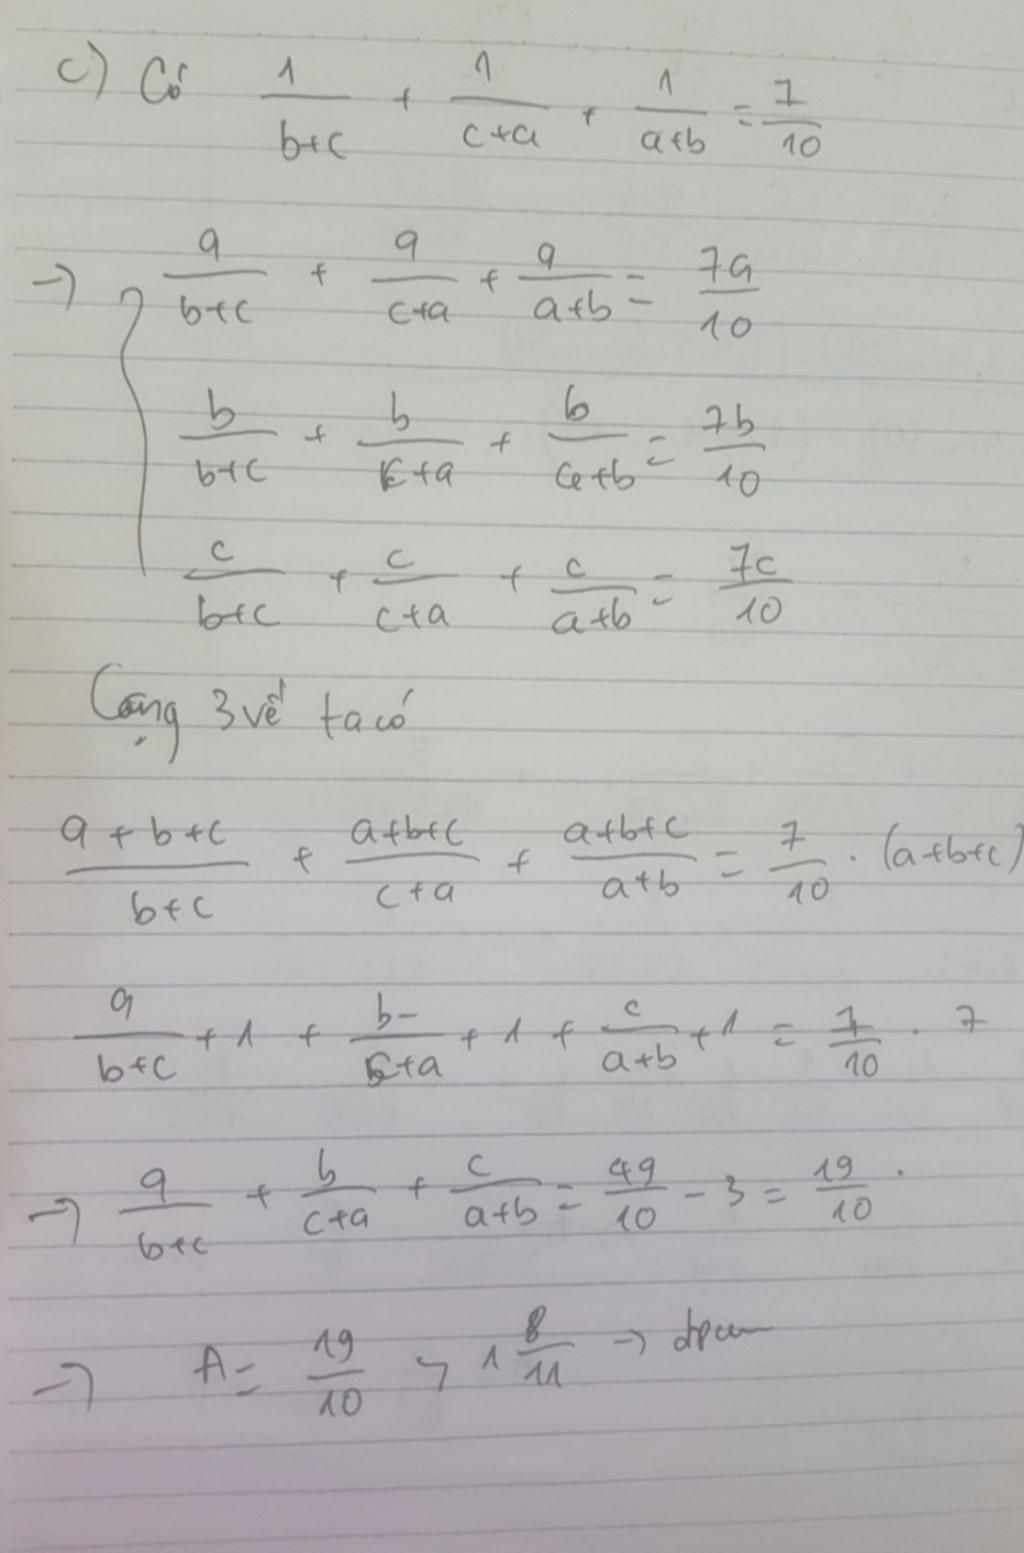 c) Có 1/(b+c) + 1/(c+a) + 1/(a+b) = 7/10
→ { a/(b+c) + a/(c+a) + a/(a+b) = 7a/10
b/(b+c) + b/(c+a) + b/(a+b) = 7b/10
c/(b+c) + c/(c+a) + c/(a+b) = 7c/10
Cộng 3 vế ta có
(a+b+c)/(b+c) + (a+b+c)/(c+a) + (a+b+c)/(a+b) = 7/10 . (a+b+c)
a/(b+c) + 1 + b/(c+a) + 1 + c/(a+b) + 1 = 7/10 . 7
→ a/(b+c) + b/(c+a) + c/(a+b) = 49/10 - 3 = 19/10 .
→ A = 19/10 > 1 8/11 → đpcm